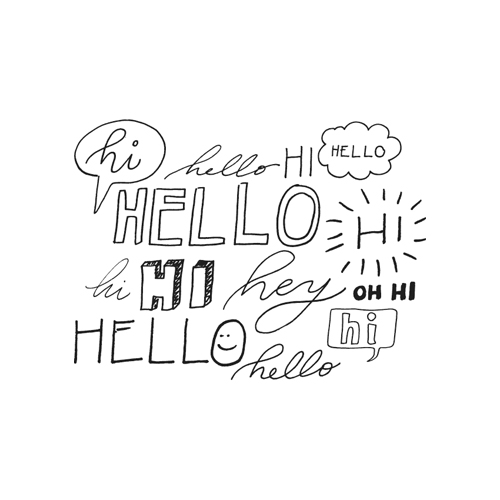 hi
hello HI HELLO
HELLO HI
hi HI hey OH HI
HELLO hi
hello